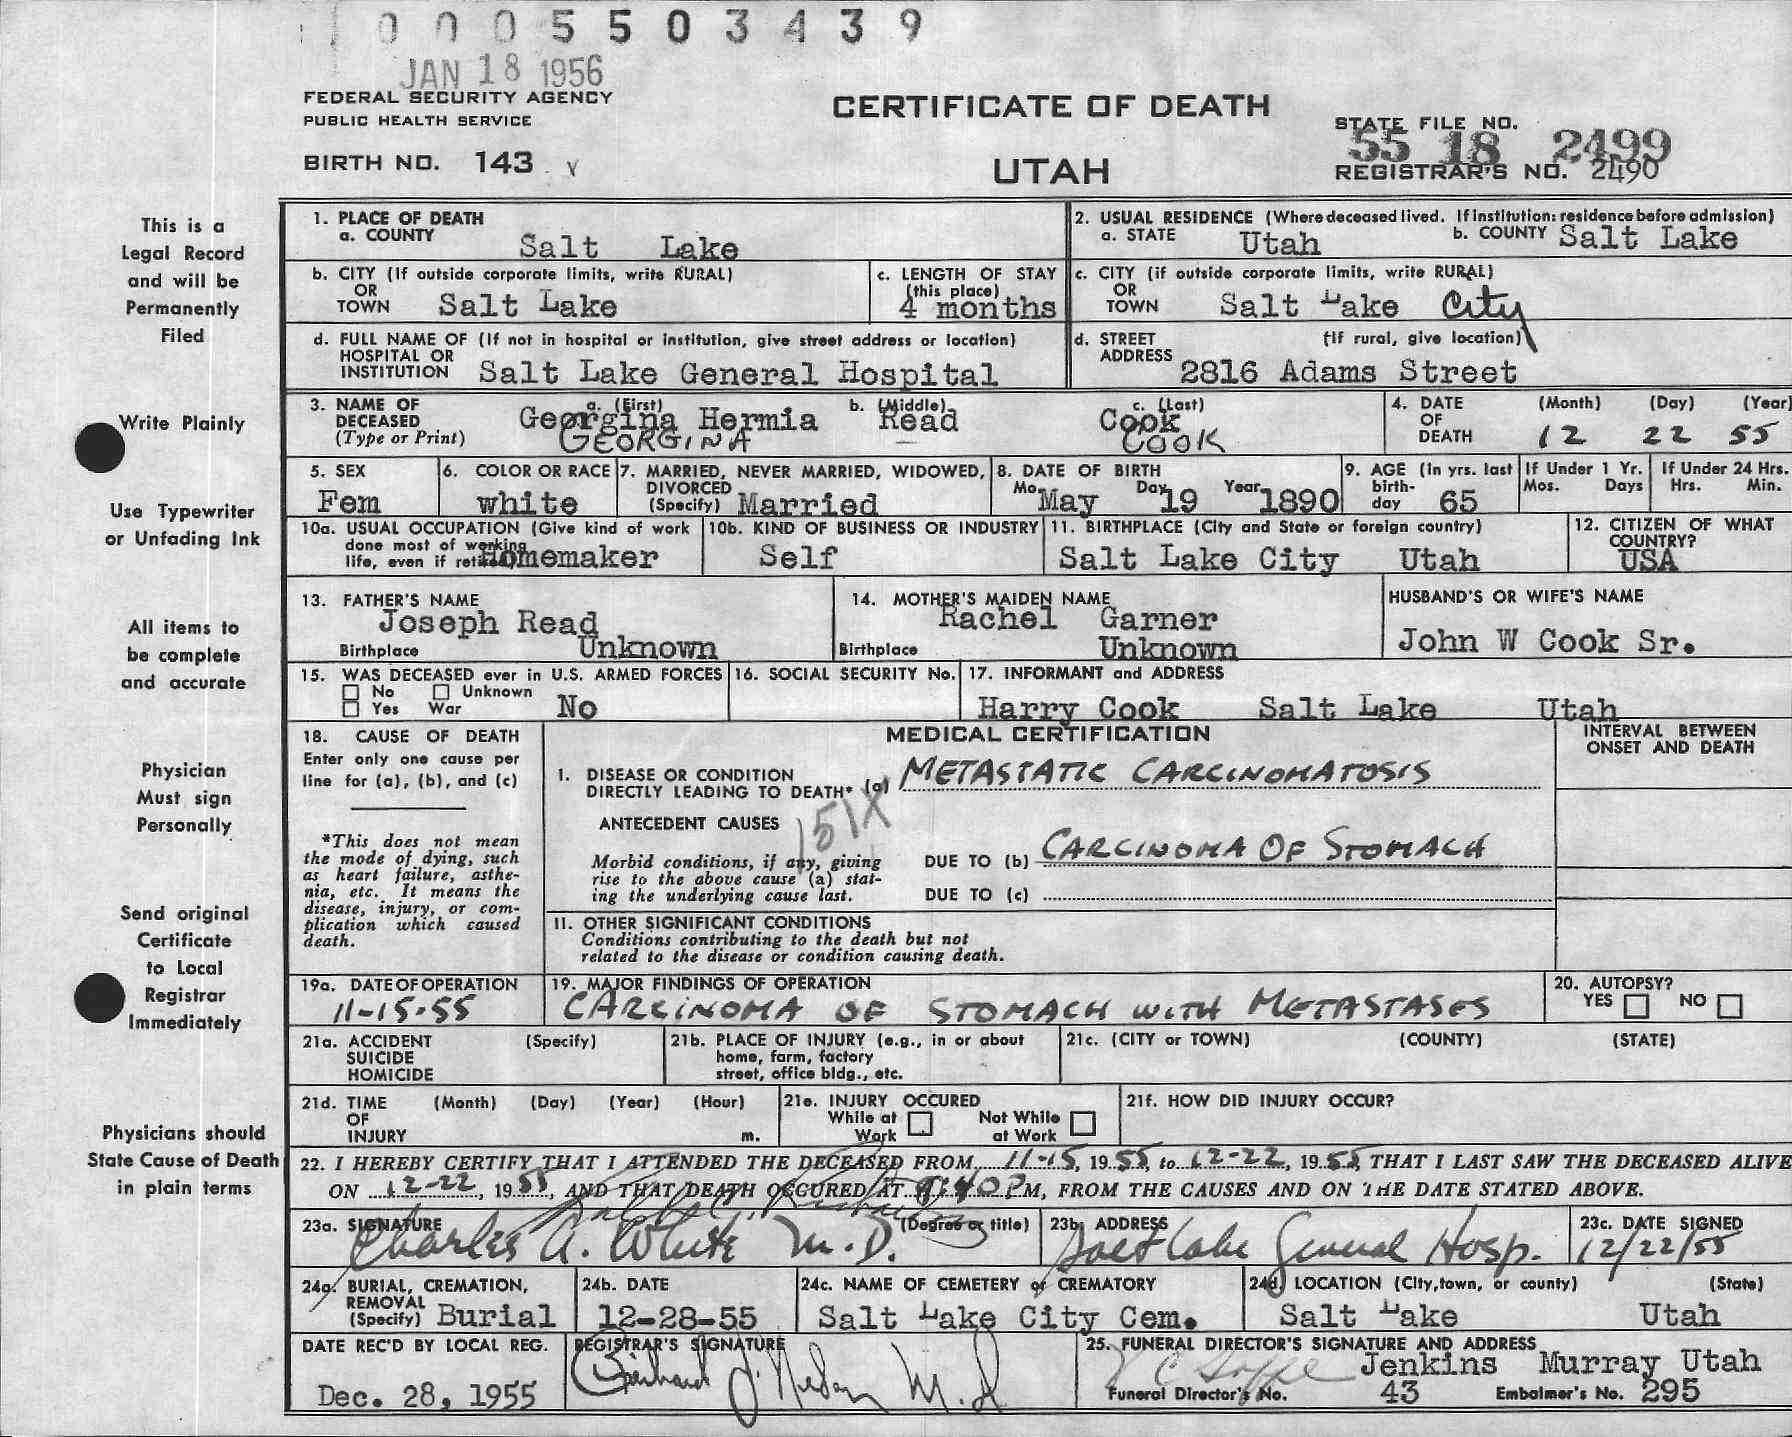 0 0 0 5 5 0 3 4 3 9
JAN 18 1956
FEDERAL SECURITY AGENCY
PUBLIC HEALTH SERVICE
BIRTH NO. 143
CERTIFICATE OF DEATH
UTAH
STATE FILE NO.
55 18 2499
REGISTRAR'S NO. 2490
This is a
Legal Record
and will be
Permanently
Filed
Write Plainly
Use Typewriter
or Unfading Ink
All items to
be complete
and accurate
Physician
Must sign
Personally
Send original
Certificate
to Local
Registrar
Immediately
Physicians should
State Cause of Death
in plain terms
1. PLACE OF DEATH
a. COUNTY Salt Lake
2. USUAL RESIDENCE (Where deceased lived. If institution: residence before admission)
a. STATE Utah b. COUNTY Salt Lake
b. CITY (If outside corporate limits, write RURAL)
OR
TOWN Salt Lake
c. LENGTH OF STAY
(this place)
4 months
c. CITY (if outside corporate limits, write RURAL)
OR
TOWN Salt Lake City
d. FULL NAME OF (If not in hospital or institution, give street address or location)
HOSPITAL OR
INSTITUTION Salt Lake General Hospital
d. STREET (If rural, give location)
ADDRESS 2816 Adams Street
3. NAME OF a. (First) b. (Middle) c. (Last)
DECEASED Georgina Hermia Read Cook
(Type or Print) GEORGINA — COOK
4. DATE (Month) (Day) (Year)
OF
DEATH 12 22 55
5. SEX
Fem
6. COLOR OR RACE
white
7. MARRIED, NEVER MARRIED, WIDOWED,
DIVORCED
(Specify) Married
8. DATE OF BIRTH
Mo. May Day 19 Year 1890
9. AGE (In yrs. last
birth-
day 65
If Under 1 Yr.
Mos. Days
If Under 24 Hrs.
Hrs. Min.
10a. USUAL OCCUPATION (Give kind of work
done most of working
life, even if retired) Homemaker
10b. KIND OF BUSINESS OR INDUSTRY
Self
11. BIRTHPLACE (City and State or foreign country)
Salt Lake City Utah
12. CITIZEN OF WHAT
COUNTRY?
USA
13. FATHER'S NAME
Joseph Read
Birthplace Unknown
14. MOTHER'S MAIDEN NAME
Rachel Garner
Birthplace Unknown
HUSBAND'S OR WIFE'S NAME
John W Cook Sr.
15. WAS DECEASED ever in U.S. ARMED FORCES
No Unknown
Yes War No
16. SOCIAL SECURITY No.
17. INFORMANT and ADDRESS
Harry Cook Salt Lake Utah
18. CAUSE OF DEATH
Enter only one cause per
line for (a), (b), and (c)
*This does not mean
the mode of dying, such
as heart failure, asthe-
nia, etc. It means the
disease, injury, or com-
plication which caused
death.
MEDICAL CERTIFICATION
INTERVAL BETWEEN
ONSET AND DEATH
I. DISEASE OR CONDITION
DIRECTLY LEADING TO DEATH* (a) METASTATIC CARCINOMATOSIS
151X
ANTECEDENT CAUSES
Morbid conditions, if any, giving
rise to the above cause (a) stat-
ing the underlying cause last.
DUE TO (b) CARCINOMA OF STOMACH
DUE TO (c)
II. OTHER SIGNIFICANT CONDITIONS
Conditions contributing to the death but not
related to the disease or condition causing death.
19a. DATE OF OPERATION
11-15-55
19. MAJOR FINDINGS OF OPERATION
CARCINOMA OF STOMACH WITH METASTASES
20. AUTOPSY?
YES NO
21a. ACCIDENT (Specify)
SUICIDE
HOMICIDE
21b. PLACE OF INJURY (e.g., in or about
home, farm, factory
street, office bldg., etc.
21c. (CITY or TOWN) (COUNTY) (STATE)
21d. TIME (Month) (Day) (Year) (Hour)
OF
INJURY m.
21e. INJURY OCCURED
While at Not While
Work at Work
21f. HOW DID INJURY OCCUR?
22. I HEREBY CERTIFY THAT I ATTENDED THE DECEASED FROM 11-15, 1955, to 12-22, 1955, THAT I LAST SAW THE DECEASED ALIVE
ON 12-22, 1955, AND THAT DEATH OCCURED AT 9:40 P M, FROM THE CAUSES AND ON THE DATE STATED ABOVE.
23a. SIGNATURE (Degree or title)
Charles A. White M.D.
23b. ADDRESS
Salt Lake General Hosp.
23c. DATE SIGNED
12/22/55
24a. BURIAL, CREMATION,
REMOVAL
(Specify) Burial
24b. DATE
12-28-55
24c. NAME OF CEMETERY or CREMATORY
Salt Lake City Cem.
24d. LOCATION (City, town, or county) (State)
Salt Lake Utah
DATE REC'D BY LOCAL REG.
Dec. 28, 1955
REGISTRAR'S SIGNATURE
25. FUNERAL DIRECTOR'S SIGNATURE AND ADDRESS
Jenkins Murray Utah
Funeral Director's No. 43 Embalmer's No. 295